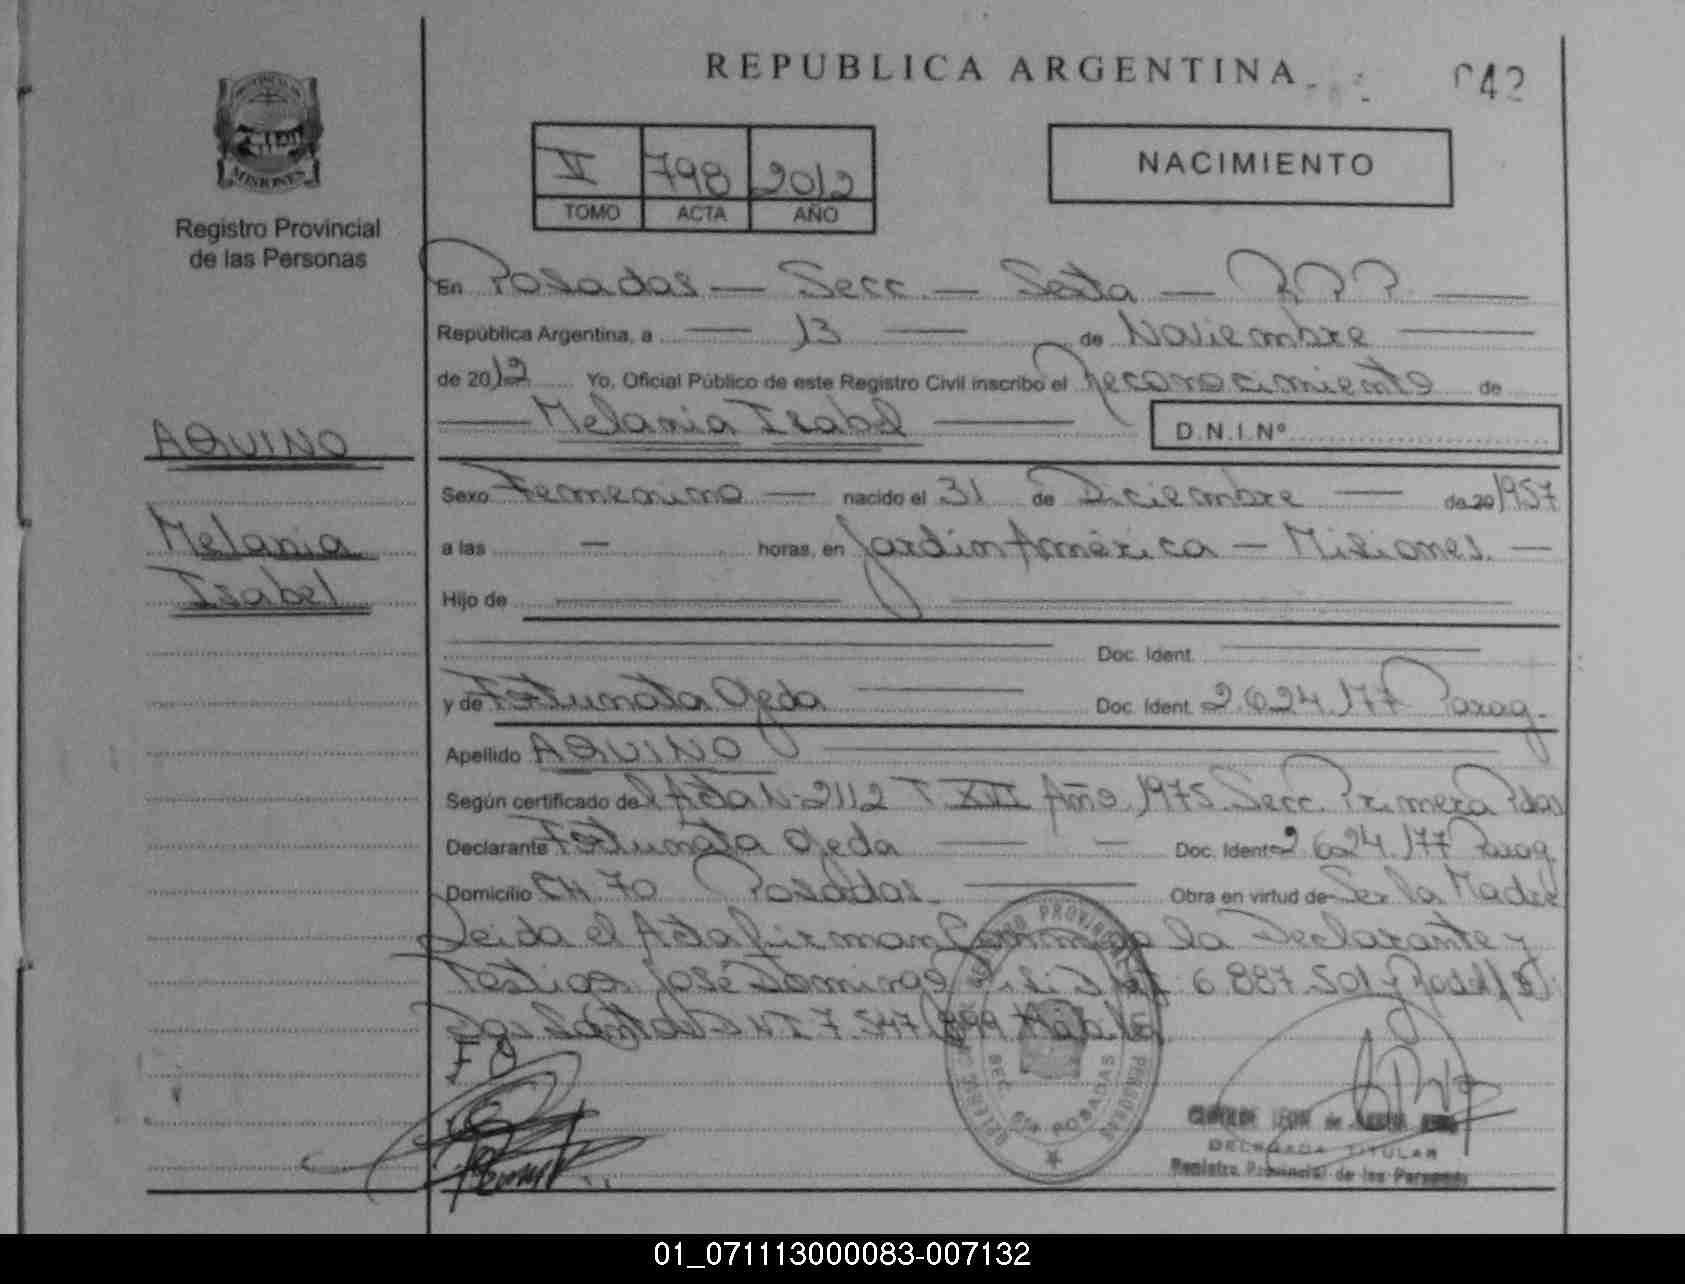 REPUBLICA ARGENTINA
042
MISIONES
Registro Provincial
de las Personas
V 798 2012
TOMO ACTA AÑO
NACIMIENTO
En Posadas — Secc. — Sexta —
República Argentina, a — 13 — de Noviembre —
de 2012 Yo, Oficial Público de este Registro Civil inscribo el Reconocimiento de
— Melania Isabel — D.N.I.Nº
AQUINO
Melania
Isabel
Sexo Femenino — nacido el 31 de Diciembre — de 20 1957
a las — horas, en Jardín América — Misiones. —
Hijo de
Doc. Ident.
y de Fortunata Ojeda — Doc. Ident. 2.624.177 Parag.
Apellido AQUINO
Según certificado de l Acta Nº 2112 T XVI Año 1975 Secc. Primera Pdas
Declarante Fortunata Ojeda — — Doc. Ident 2.624.177 Parag.
Domicilio CH. 70 Posadas. — Obra en virtud de Ser la Madre
Leida el Acta firman Conmigo la Declarante y
Testigos José Domingo 6.887.501 y
F O
SEC. 6ta POSADAS
DELEGADA TITULAR
Registro Provincial de las Personas
01_071113000083-007132